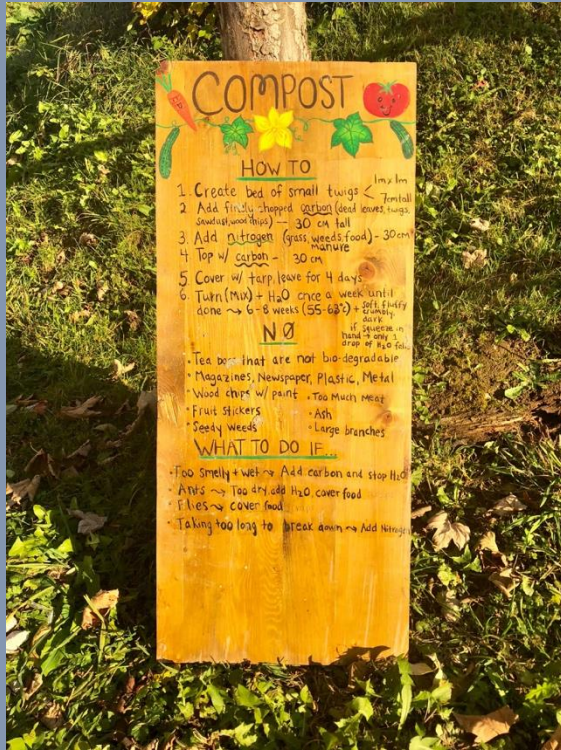 COMPOST
HOW TO
1. Create bed of small twigs < 1m x 1m
7cm tall
2. Add finely chopped carbon (dead leaves, twigs,
sawdust, wood chips) — 30 cm tall
3. Add nitrogen (grass, weeds, food) - 30 cm
manure
4. Top w/ carbon - 30 cm
5. Cover w/ tarp, leave for 4 days
6. Turn (Mix) + H2O once a week until
done ⤳ 6-8 weeks (55-63°c) + soft, fluffy
crumbly
dark
if squeeze in
hand → only 1
drop of H2O falls
NØ
• Tea bags that are not bio-degradable
• Magazines, Newspaper, Plastic, Metal
• Wood chips w/ paint • Too Much Meat
• Fruit stickers • Ash
• Seedy Weeds • Large branches
WHAT TO DO IF...
• Too smelly + wet ⤳ Add carbon and stop H2O
• Ants ⤳ Too dry, add H2O, cover food
• Flies ⤳ cover food
• Taking too long to break down ⤳ Add Nitrogen